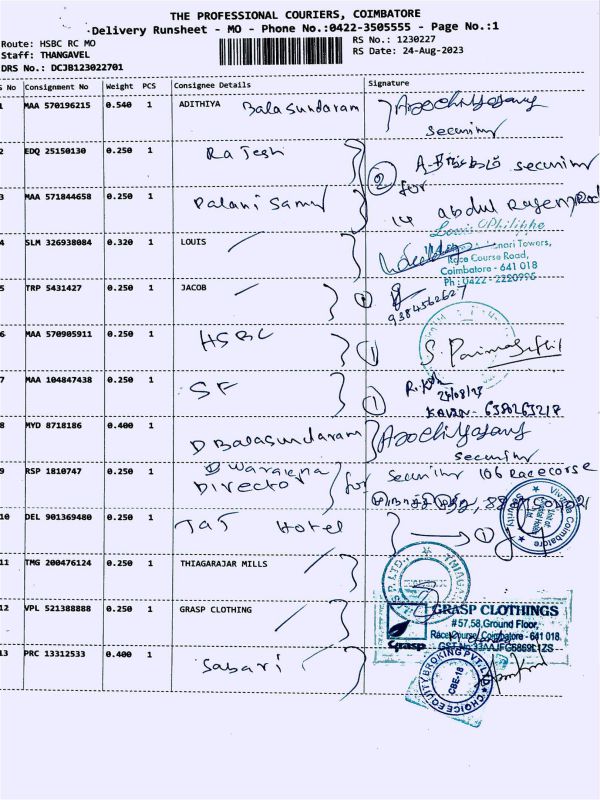 THE PROFESSIONAL COURIERS, COIMBATORE
Delivery Runsheet - MO - Phone No.:0422-3505555 - Page No.:1
Route: HSBC RC MO
RS No.: 1230227
Staff: THANGAVEL
RS Date: 24-Aug-2023
DRS No.: DCJB123022701
S No Consignment No Weight PCS Consignee Details Signature
1 MAA 570196215 0.540 1 ADITHIYA Balasundaram
security
2 EDQ 25150130 0.250 1 Rajesh
security
for
3 MAA 571844658 0.250 1 Palani Samy
14 abdul
Louis Philippe
4 SLM 326938084 0.320 1 LOUIS
Towers,
Race Course Road,
Coimbatore - 641 018
Ph : 0422 - 2220996
5 TRP 5431427 0.250 1 JACOB
9384562627
6 MAA 570905911 0.250 1 HSBC 1
7 MAA 104847438 0.250 1 SF 1
24/08/23
8 MYD 8718186 0.400 1 D Balasundaram
security
9 RSP 1810747 0.250 1
Director
for security 106 racecorse
10 DEL 901369480 0.250 1 TaJ Hotel 1
Coimbatore
Security
11 TMG 200476124 0.250 1 THIAGARAJAR MILLS
12 VPL 521388888 0.250 1 GRASP CLOTHING
GRASP CLOTHINGS
#57,58,Ground Floor,
Race Course, Coimbatore - 641 018.
Grasp
13 PRC 13312533 0.400 1 Sabari
CHOICE EQUITY BROKING PVT. LTD.
CBE-18